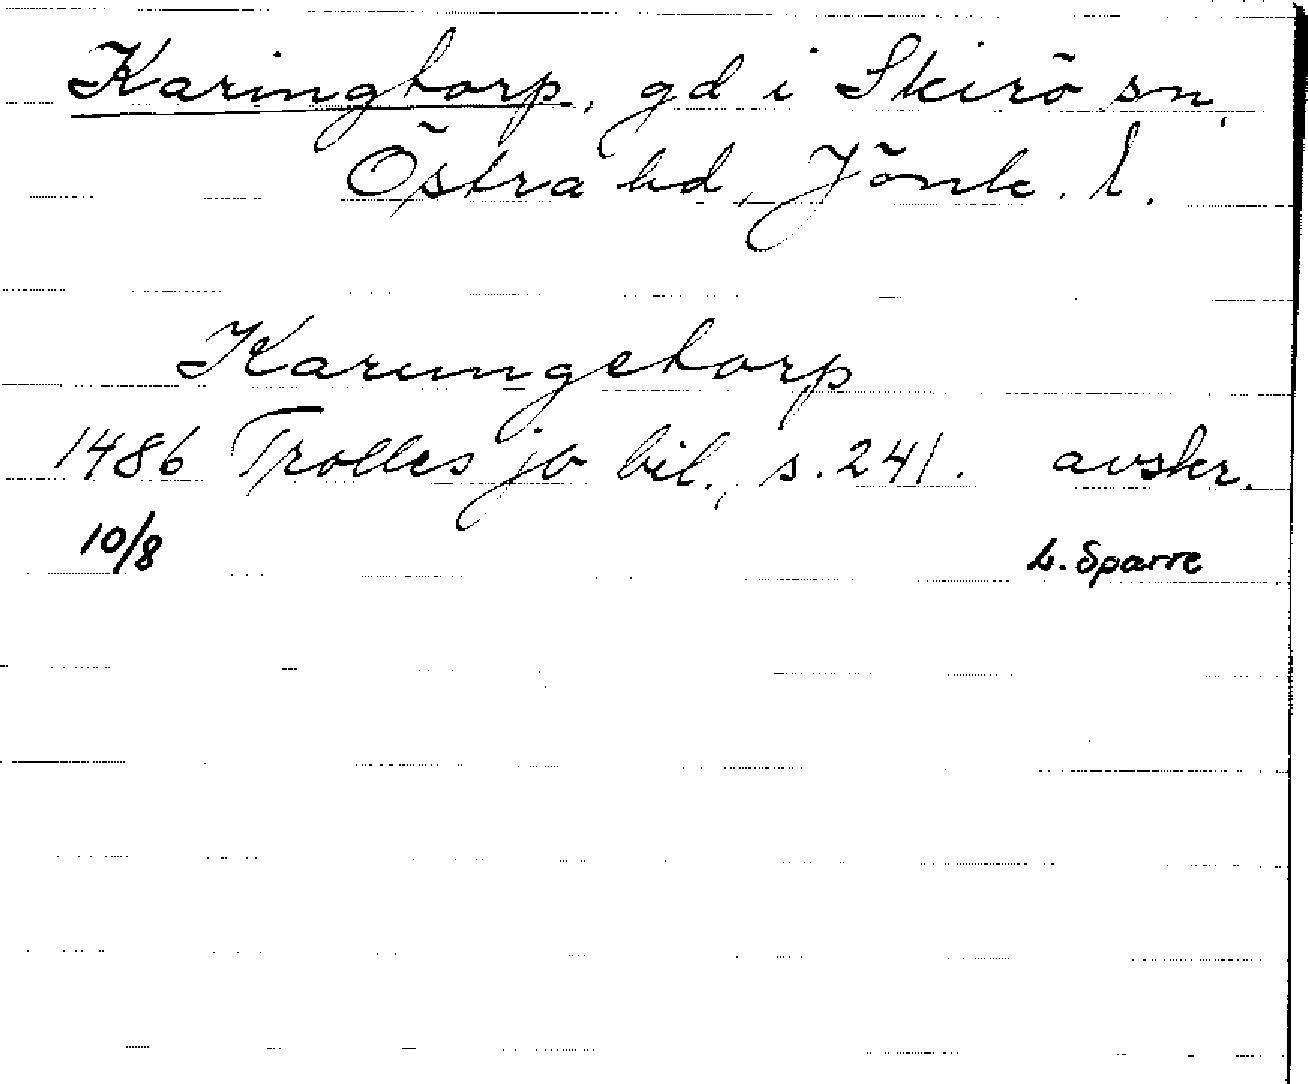 Karingtorp, gd i Skirö sn,
Östra hd, Jönk. l.
Karungetorp
1486 Trolles jb bil., s. 241. avskr.
10/8 L. Sparre